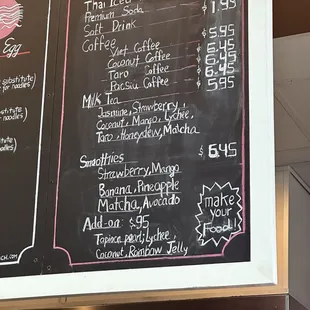 Thai Iced
Premium Soda $1.95
Salt Drink
Coffee $5.95
Viet Coffee $6.45
Coconut Coffee $6.45
Taro Coffee $6.45
Pacsiu Coffee $5.95
Milk Tea
Jasmine, Strawberry,
Coconut, Mango, Lychee,
Taro, Honeydew, Matcha
$6.45
Smoothies
Strawberry, Mango
Banana, Pineapple
Matcha, Avocado
Add-on: $.95
Tapioca pearl, Lychee,
Coconut, Rainbow Jelly
make
your
Food!
Egg
substitute
for noodles)
substitute
noodles)